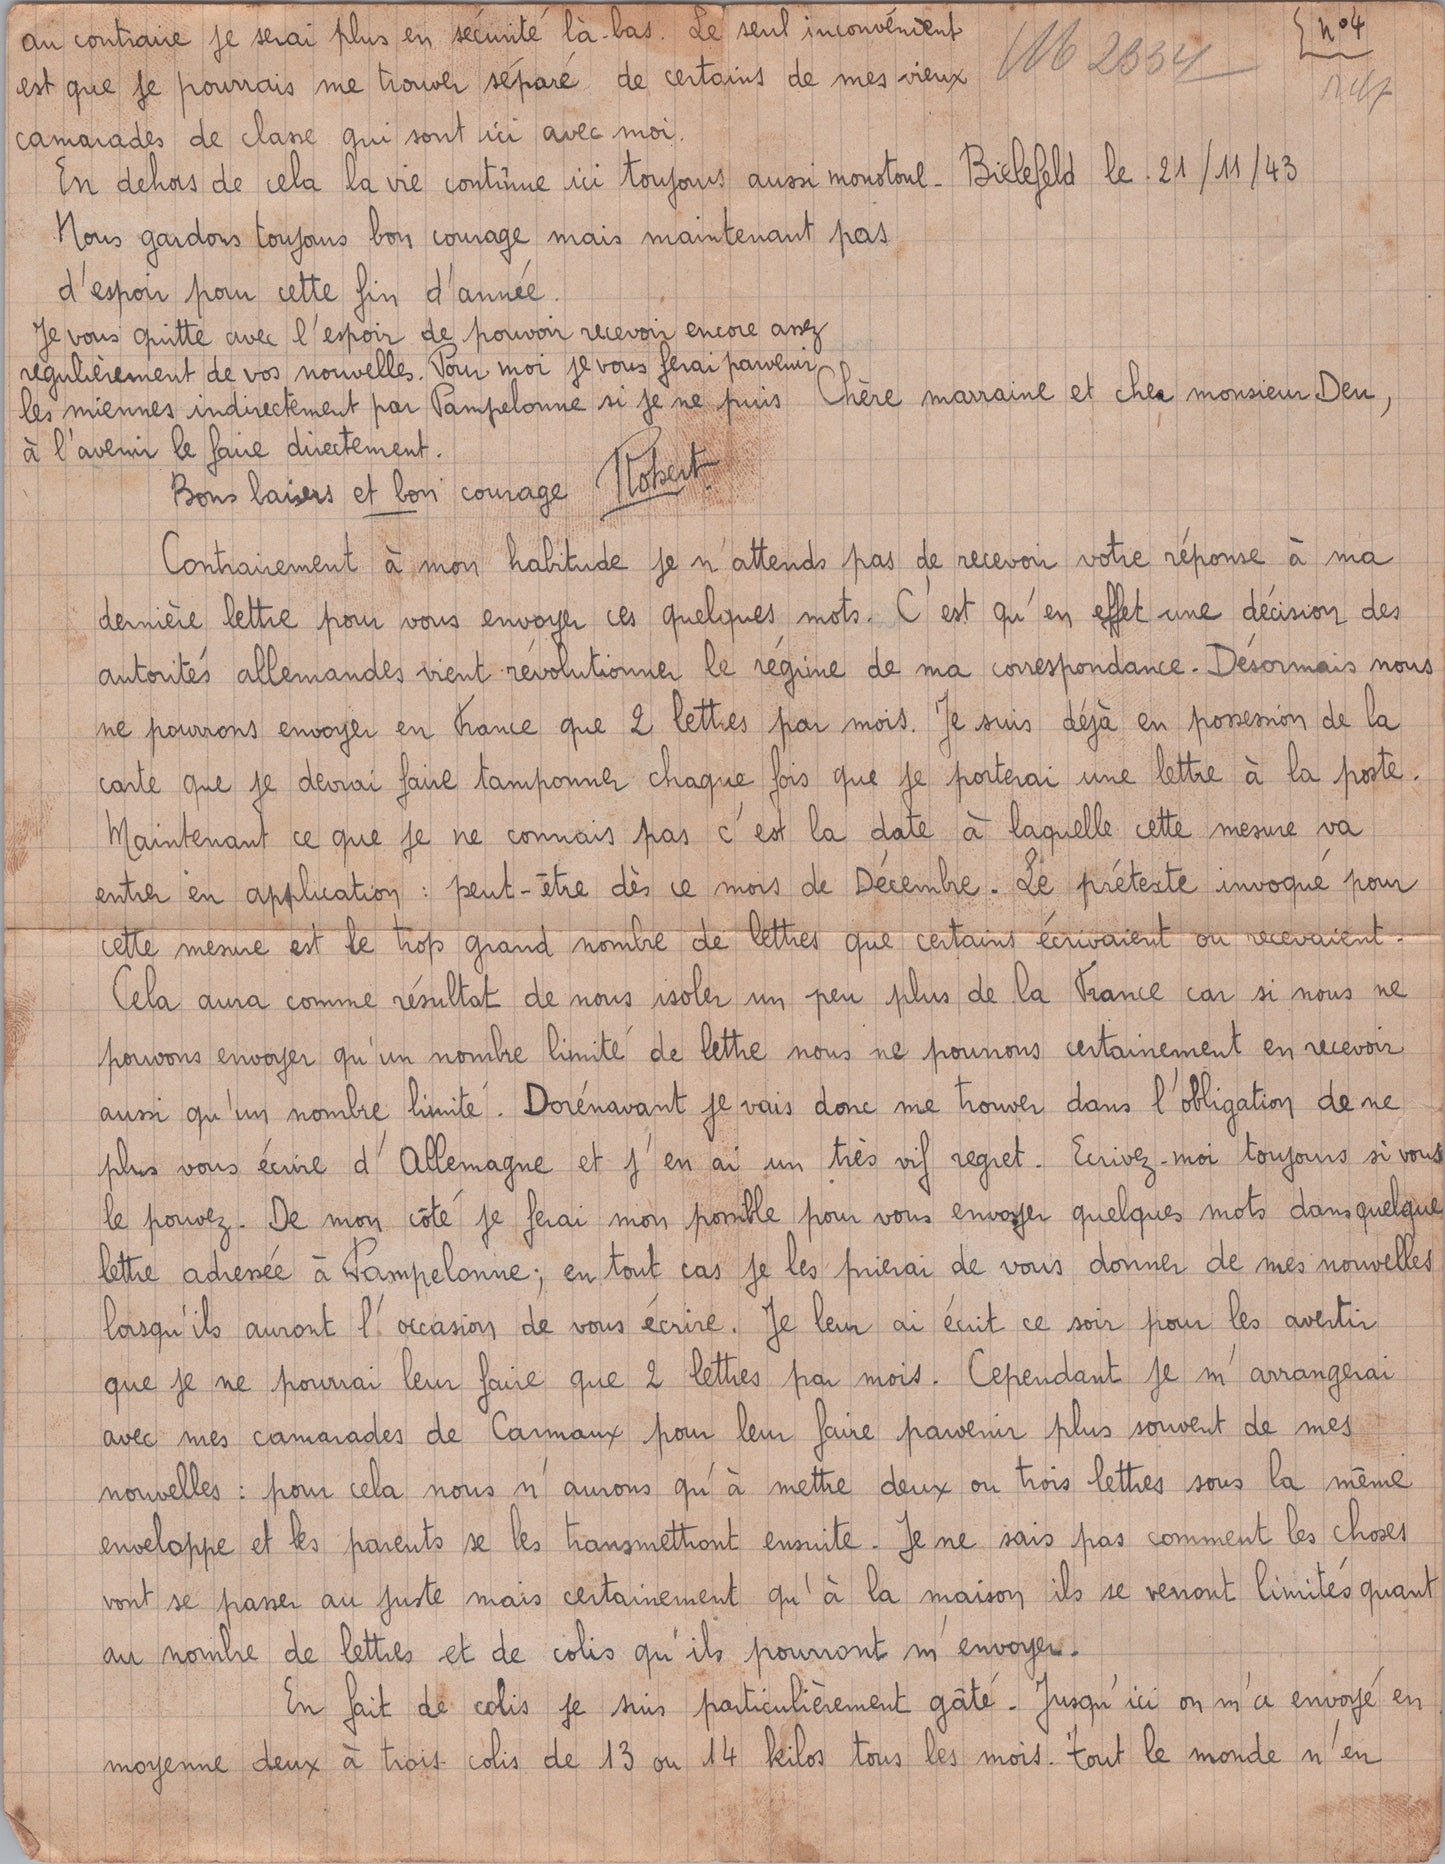 au contraire je serai plus en sécurité là-bas. Le seul inconvénient
est que je pourrais me trouver séparé de certains de mes vieux
camarades de classe qui sont ici avec moi.
En dehors de cela la vie continue ici toujours aussi monotone.
Nous gardons toujours bon courage mais maintenant pas
d'espoir pour cette fin d'année.
Je vous quitte avec l'espoir de pouvoir recevoir encore assez
regulièrement de vos nouvelles. Pour moi je vous ferai parvenir
les miennes indirectement par Pampelonne si je ne puis
à l'avenir le faire directement.
Bons baisers et bon courage Robert.
n°4
Bielefeld le 21/11/43
Chère marraine et cher monsieur Deu,
Contrairement à mon habitude je n'attends pas de recevoir votre réponse à ma
dernière lettre pour vous envoyer ces quelques mots. C'est qu'en effet une décision des
autorités allemandes vient révolutionner le régime de ma correspondance. Désormais nous
ne pourrons envoyer en France que 2 lettres par mois. Je suis déjà en possession de la
carte que je devrai faire tamponner chaque fois que je porterai une lettre à la poste.
Maintenant ce que je ne connais pas c'est la date à laquelle cette mesure va
entrer en application : peut-être dès ce mois de Décembre. Le prétexte invoqué pour
cette mesure est le trop grand nombre de lettres que certains écrivaient ou recevaient.
Cela aura comme résultat de nous isoler un peu plus de la France car si nous ne
pouvons envoyer qu'un nombre limité de lettre nous ne pourrons certainement en recevoir
aussi qu'un nombre limité. Dorénavant je vais donc me trouver dans l'obligation de ne
plus vous écrire d'Allemagne et j'en ai un très vif regret. Ecrivez-moi toujours si vous
le pouvez. De mon côté je ferai mon possible pour vous envoyer quelques mots dans quelque
lettre adressée à Pampelonne; en tout cas je les prierai de vous donner de mes nouvelles
lorsqu'ils auront l'occasion de vous écrire. Je leur ai écrit ce soir pour les avertir
que je ne pourrai leur faire que 2 lettres par mois. Cependant je m'arrangerai
avec mes camarades de Carmaux pour leur faire parvenir plus souvent de mes
nouvelles : pour cela nous n'aurons qu'à mettre deux ou trois lettres sous la même
enveloppe et les parents se les transmettront ensuite. Je ne sais pas comment les choses
vont se passer au juste mais certainement qu'à la maison ils se verront limités quant
au nombre de lettres et de colis qu'ils pourront m'envoyer.
En fait de colis je suis particulièrement gâté. Jusqu'ici on m'a envoyé en
moyenne deux à trois colis de 13 ou 14 kilos tous les mois. Tout le monde n'en